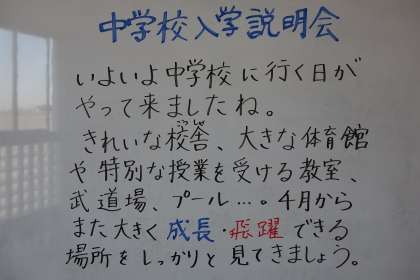 中学校入学説明会
いよいよ中学校に行く日が
やって来ましたね。
きれいな校舎、大きな体育館
や特別な授業を受ける教室、
武道場、プール…。4月から
また大きく成長・飛躍できる
場所をしっかりと見てきましょう。